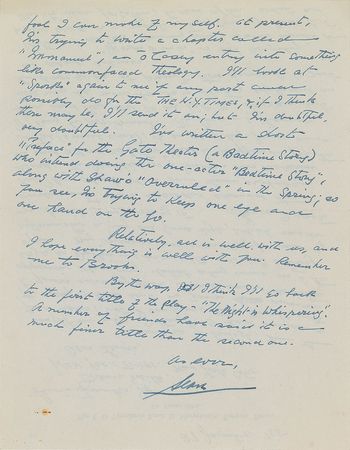 fool I can make of myself. At present,
I'm trying to write a chapter called
"Immanuel", an O'Casey entry into something
like commonfaced theology. I'll look at
"Sparks" again to see if any part
possibly do for the THE N.Y. TIMES, & if I think
there may be, I'll send it on; but I'm doubtful,
very doubtful. I've written a short
"Preface" for the Gate Theater (a Bedtime Story)
who intend doing the one-acter "Bedtime Story",
along with Shaw's "Overruled" in the Spring; so
you see, I'm trying to keep one eye and
one hand on the go.
Relatively, all is well with us, and
I hope everything is well with you. Remember
me to Brooks.
By the way, I think I'll go back
to the first title of the play - "The Night is Whispering".
A number of friends have said it is a
much finer title than the second one.
As ever,
Sean